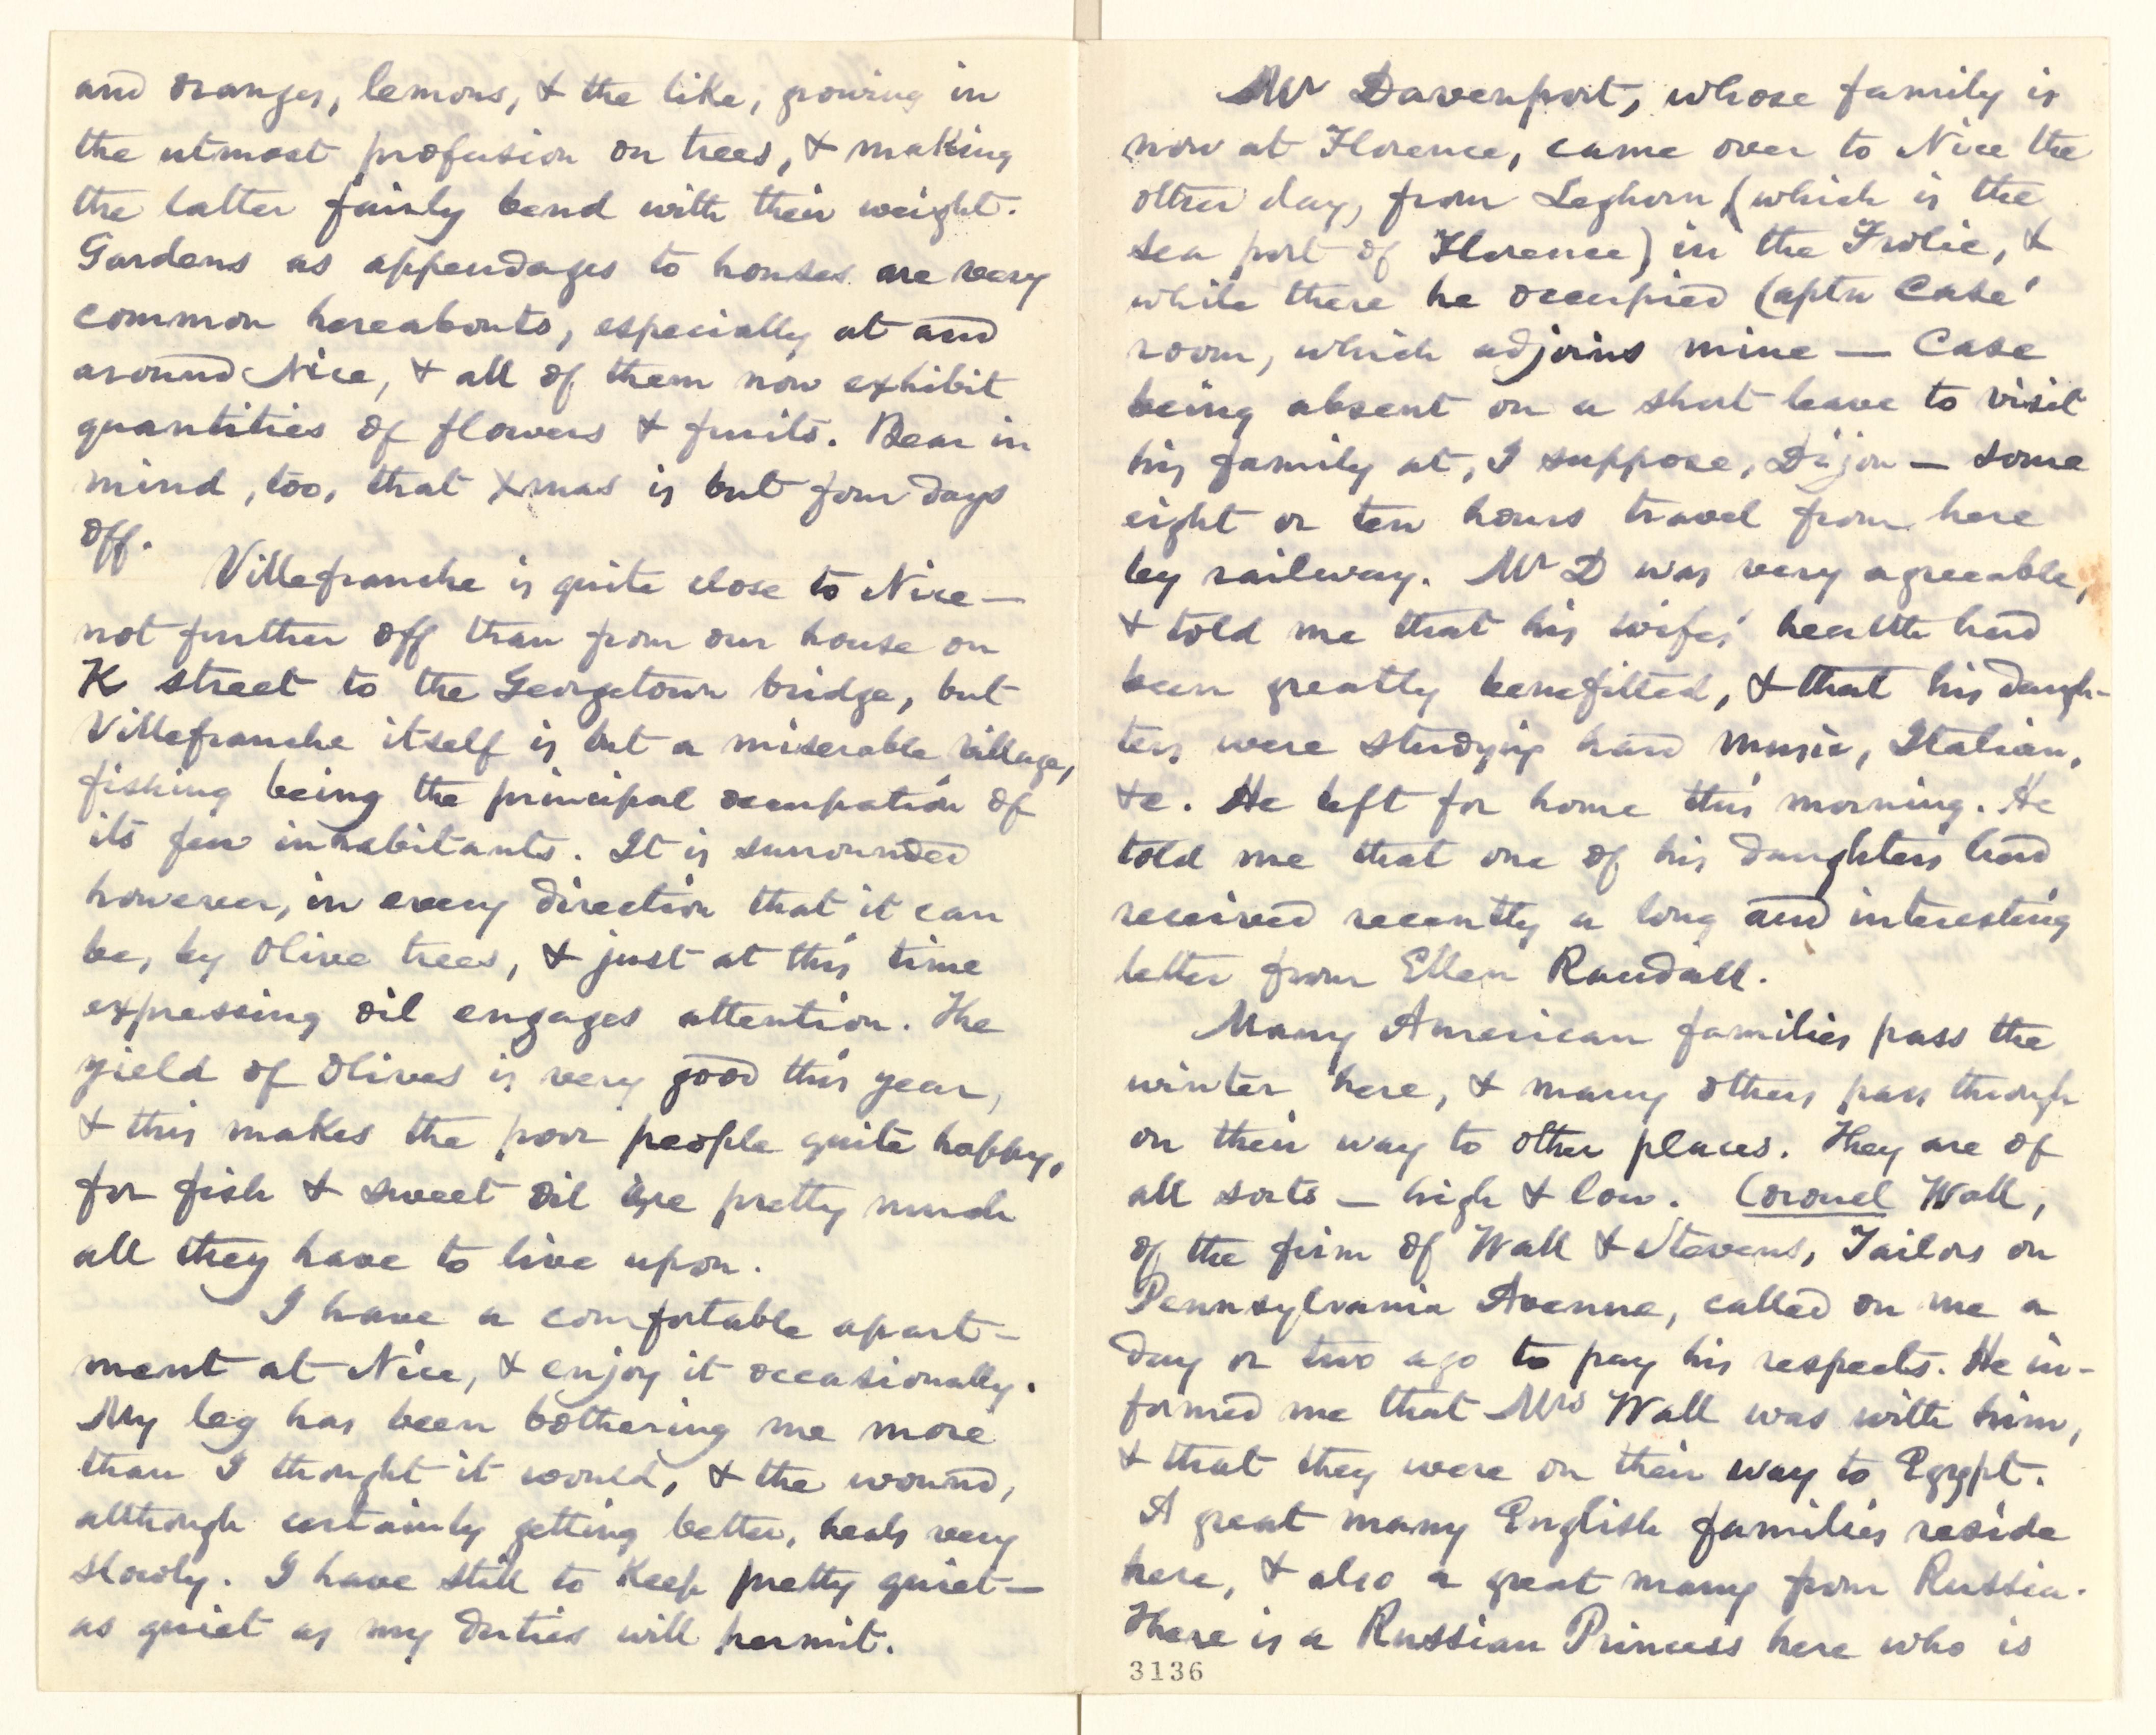 and oranges, lemons, & the like, growing in
the utmost profusion on trees, & making
the latter fairly bend with their weight.
Gardens as appendages to houses are very
common hereabouts, especially at and
around Nice, & all of them now exhibit
quantities of flowers & fruits. Bear in
mind, too, that Xmas is but four days
off.
Villefranche is quite close to Nice —
not further off than from our house on
K street to the Georgetown bridge, but
Villefranche itself is but a miserable village,
fishing being the principal occupation of
its few inhabitants. It is surrounded
however, in every direction that it can
be, by Olive trees, & just at this time
expressing oil engages attention. The
yield of Olives is very good this year,
& this makes the poor people quite happy,
for fish & sweet oil are pretty much
all they have to live upon.
I have a comfortable apart-
ment at Nice, & enjoy it occasionally.
My leg has been bothering me more
than I thought it would, & the wound,
although certainly getting better, heals very
slowly. I have still to Keep pretty quiet —
as quiet as my duties will permit.
Mr Davenport, whose family is
now at Florence, came over to Nice the
other day, from Leghorn (which is the
sea port of Florence) in the Frolic, &
while there he occupied Captn Case'
room, which adjoins mine — Case
being absent on a short leave to visit
his family at, I suppose, Dijon — some
eight or ten hours travel from here
by railway. Mr D was very agreeable,
& told me that his wifes' health had
been greatly benefitted, & that his daugh-
ters were studying hard music, Italian,
&c. He left for home this morning. He
told me that one of his daughters had
received recently a long and interesting
letter from Ellen Randall.
Many American families pass the
winter here, & many others pass through
on their way to other places. They are of
all sorts — high & low. Coronel Wall,
of the firm of Wall & Stevens, Tailors on
Pennsylvania Avenue, called on me a
day or two ago to pay his respects. He in-
formed me that Mrs Wall was with him,
& that they were on their way to Egypt.
A great many English families reside
here, & also a great many from Russia.
There is a Russian Princess here who is
3136